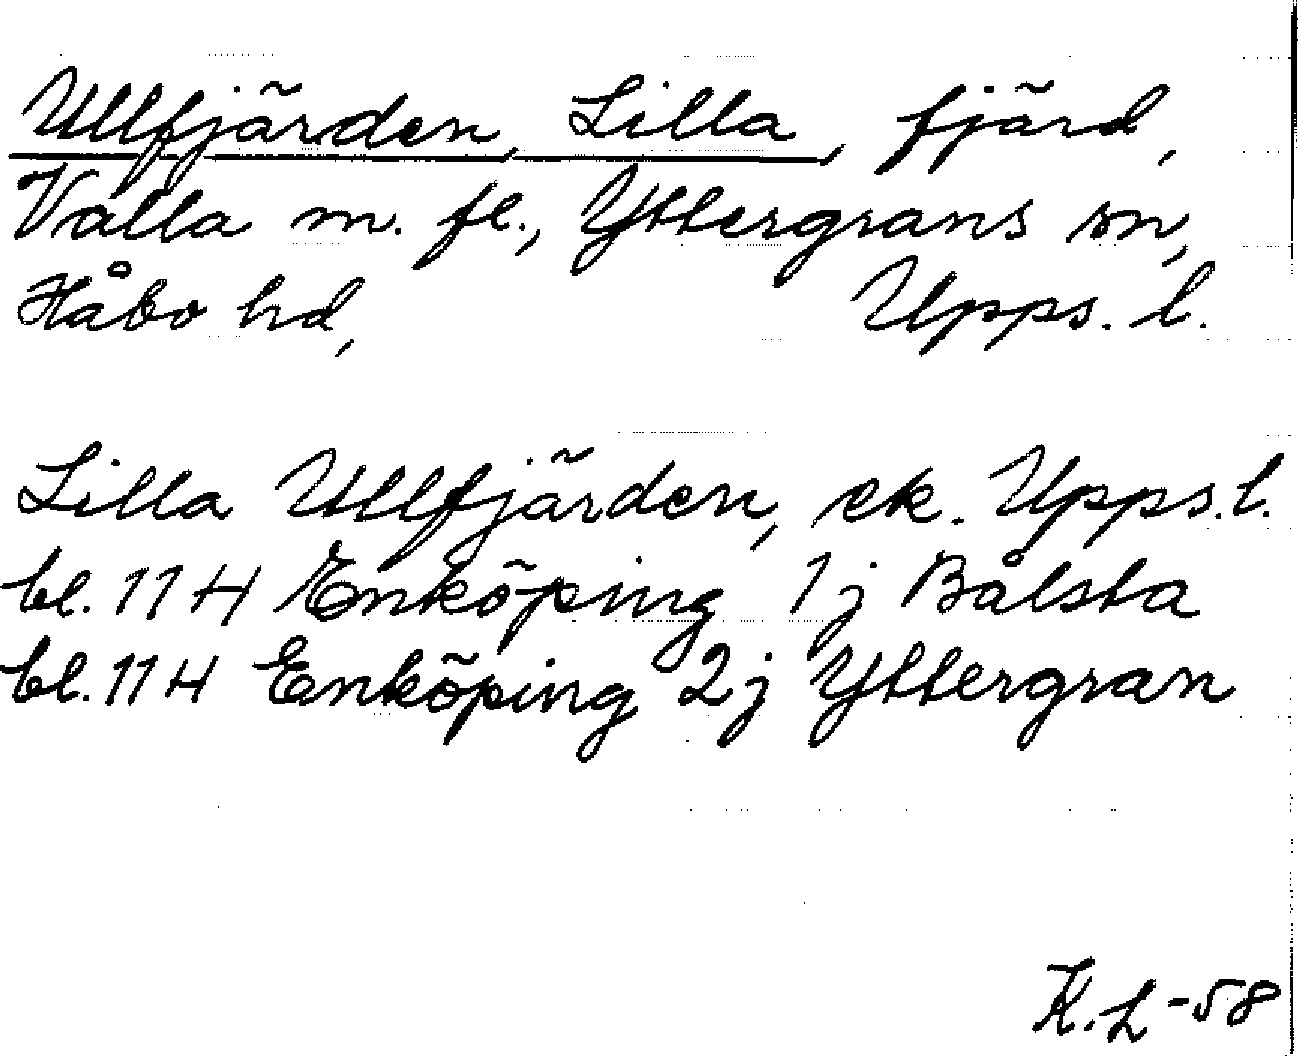 Ullfjärden, Lilla, fjärd,
Valla m. fl., Yttergrans sn,
Håbo hd, Upps. l.
Lilla Ullfjärden, ek. Upps.l.
bl. 11 H Enköping 1j Bålsta
bl. 11 H Enköping 2j Yttergran
K.L-58